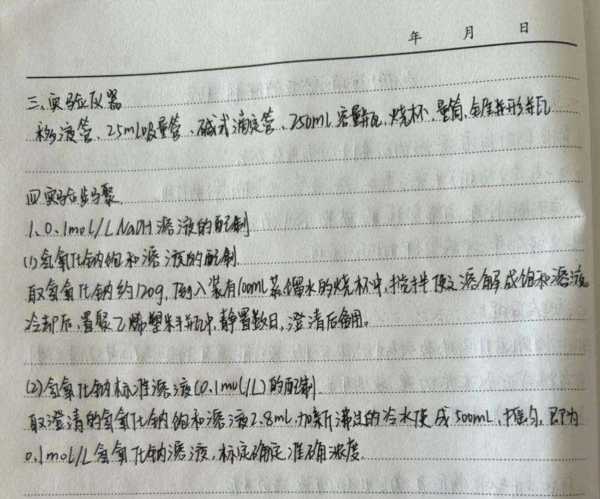 年 月 日
三、实验仪器
移液管、25mL吸量管、碱式滴定管、250mL容量瓶、烧杯、量筒、锥形瓶
四、实验步骤
1、0.1mol/LNaOH溶液的配制
(1)氢氧化钠饱和溶液的配制
取氢氧化钠约120g,倒入装有100mL蒸馏水的烧杯中,搅拌使之溶解成饱和溶液
冷却后,置聚乙烯塑料瓶中,静置数日,澄清后备用。
(2)氢氧化钠标准溶液(0.1mol/L)的配制
取澄清的氢氧化钠饱和溶液2.8mL,加新沸过的冷水使成500mL,摇匀,即为
0.1mol/L氢氧化钠溶液,标定确定准确浓度.